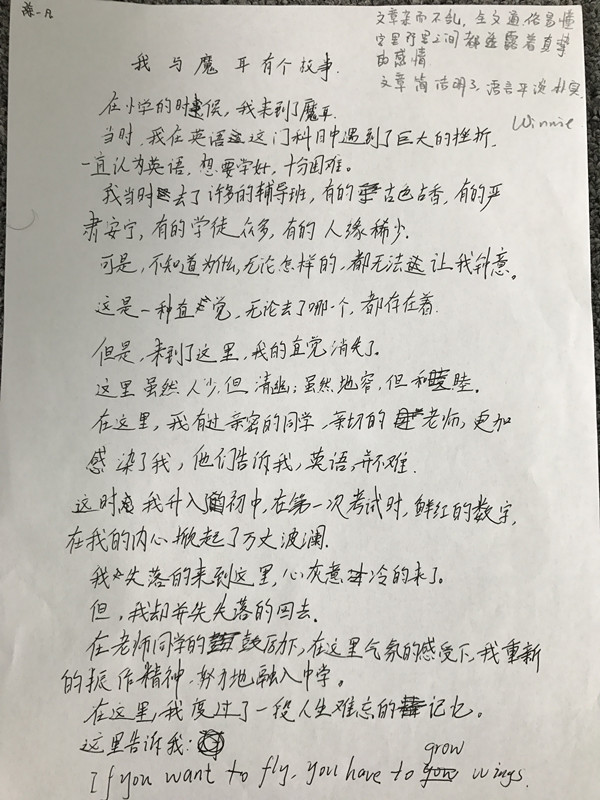 陈一凡
文章杂而不乱，全文通俗易懂
字里行里之间都透露着真挚
的感情
文章简洁明了，语言平淡朴实
Winnie
我与魔耳有个故事.
在小学的时候，我来到了魔耳.
当时，我在英语这门科目中遇到了巨大的挫折.
一直认为英语，想要学好，十分困难。
我当时去了许多的辅导班，有的古色古香，有的严
肃安宁，有的学徒众多，有的人缘稀少.
可是，不知道为什么，无论怎样的，都无法让我判意。
这是一种直觉，无论去了哪一个，都存在着.
但是，来到了这里，我的直觉消失了。
这里虽然人少，但清幽；虽然地窄，但和睦。
在这里，我有过亲密的同学，亲切的老师，更加
感染了我，他们告诉我，英语，并不难.
这时，我升入初中，在第一次考试时，鲜红的数字，
在我的内心掀起了万丈波澜.
我失落的来到这里，心灰意冷的来了。
但，我却并失失落的回去.
在老师同学的鼓励下，在这里气氛的感受下，我重新
的振作精神，努力地融入中学。
在这里，我度过了一段人生难忘的记忆。
这里告诉我：
If you want to fly, you have to grow wings.